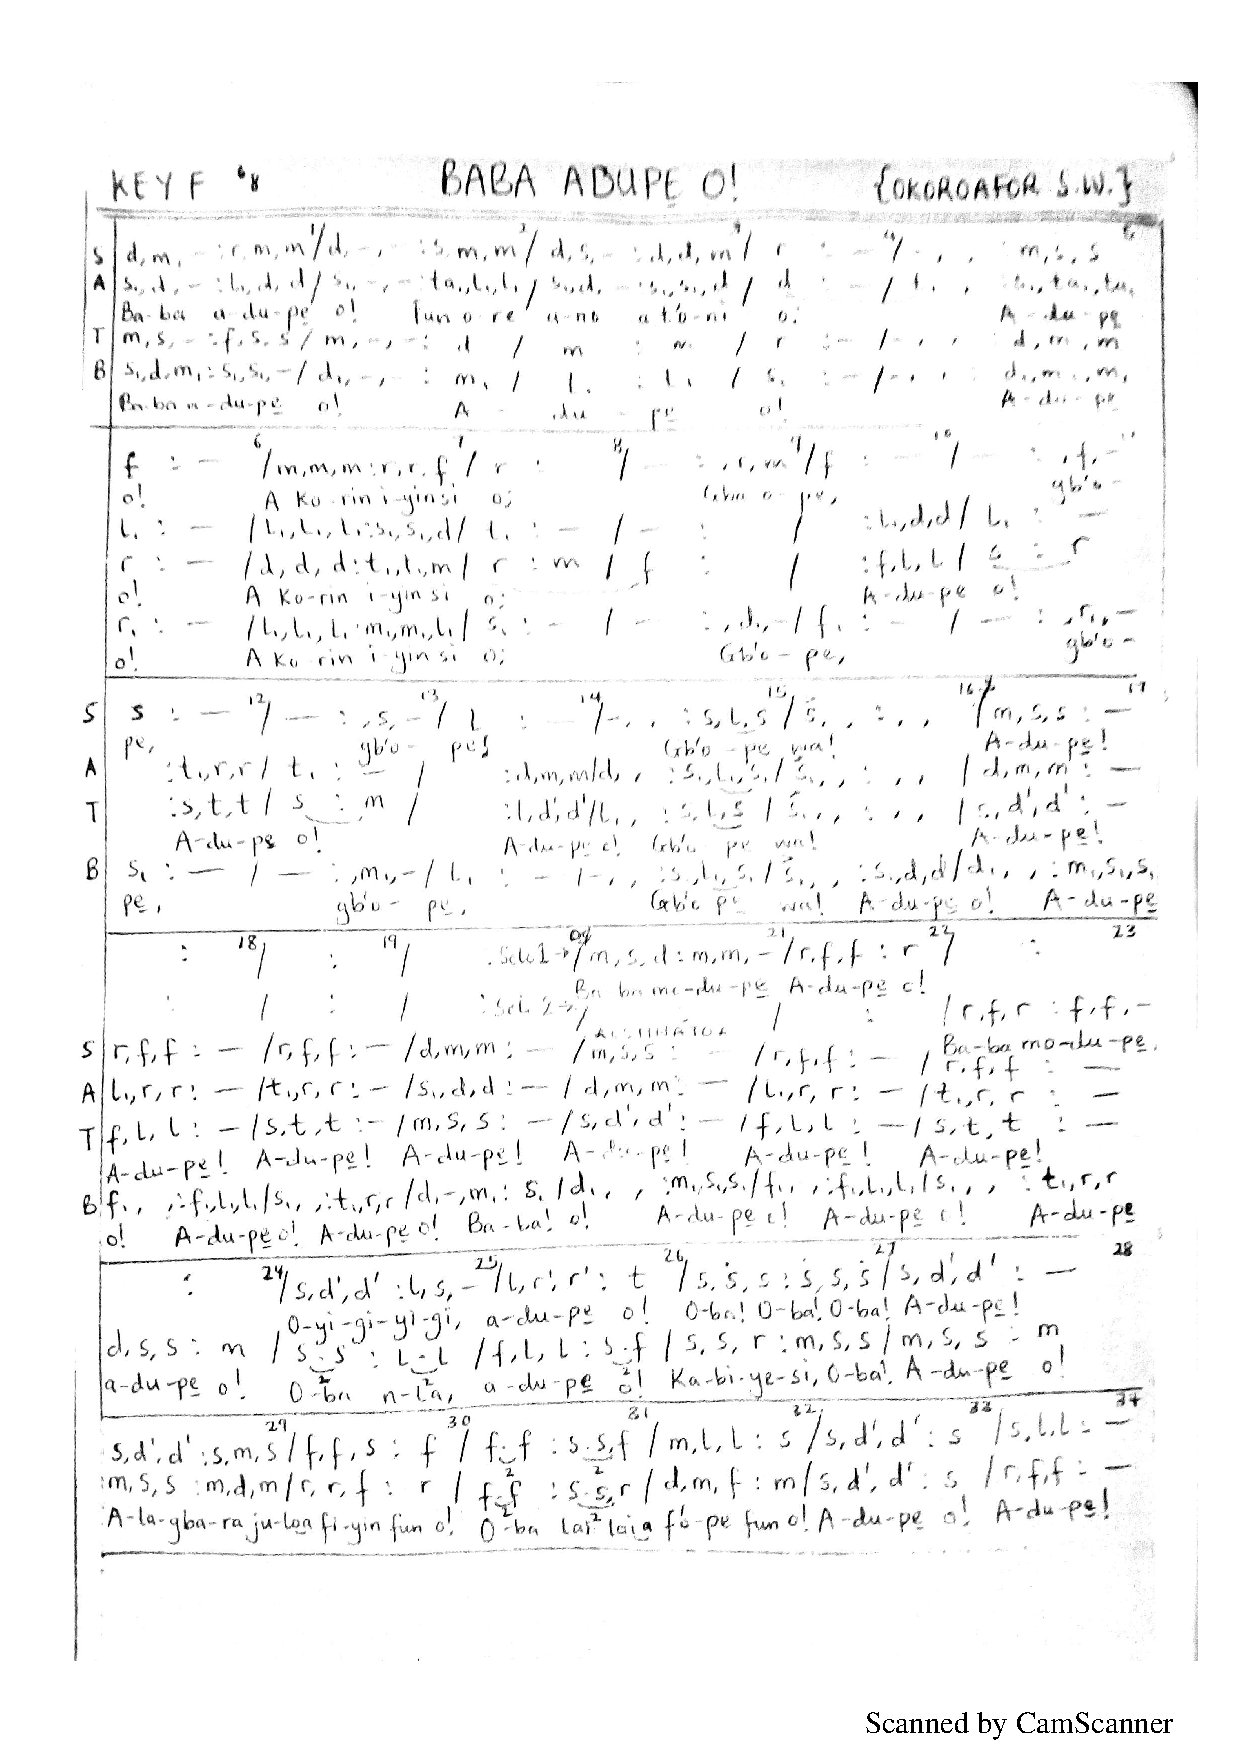 KEY F 6/8 BABA ADUPE O! {OKOROAFOR S.W.}
S d,m, - :r,m,m/d,-,- :s,m,m/ d,s,- :d,d,m/ r : - /-, , :m,s,s
A s₁,d,- :l₁,d,d/ s₁,-,- :ta₁,l₁,l₁/ s₁,d,- :s₁,s₁,d/ d : - / t₁, ,
Ba-ba a-du-pe o! fun o-re a-no a t'o-ni o; A-du-pe
T m,s,- :f,s,s/ m,-,-: d / m : / r :- /-, , : d,m,m
B s₁,d,m₁:s₁,s₁,-/ d₁,-,- : m₁ / l₁ : l₁ / s₁ : - /-, , : d₁,m₁,m₁
Ba-ba a-du-pẹ o! A - du - pẹ o! A-du-pẹ
f : - /m,m,m:r,r,f/ r : /- : ,r,m/f : - /- : ,f,-
o! A Ko-rin i-yin si o; Gba o-pe, gb'o-
l₁ : - /l₁,l₁,l₁:s₁,s₁,d/ t₁ : - / - : / :l₁,d,d/ l₁ : -
r : - /d,d,d:t₁,t₁,m/ r : m / f : / :f,l,l/ s : r
o! A Ko-rin i-yin si o; A-du-pe o!
r₁ : - /l₁,l₁,l₁:m₁,m₁,l₁/ s₁ : - / - : ,d₁,-/ f₁ : - / - : ,r₁,-
o! A Ko rin i-yin si o; Gb'o-pe, gb'o-
S s : - / - : ,s,-/ l : - /-, , :s,l,s/ s, , : , , /m,s,s : -
pe, gb'o- pe! Gb'o-pe wa! A-du-pẹ!
A :t₁,r,r/ t₁ : - / :d,m,m/d, , :s₁,l₁,s₁/ s₁, , : , , / d,m,m : -
T :s,t,t/ s : m / :l,d',d'/l, , : s,l,s / s, , : , , / s,d',d' : -
A-du-pẹ o! A-du-pẹ o! Gb'o pe wa! A-du-pẹ!
B s₁ : - / - : ,m₁,-/ l₁ : - /-, , :s₁,l₁,s₁/ s₁, , :s₁,d,d/d₁, , : m₁,s₁,s₁
pẹ, gb'o- pe, Gb'o pẹ wa! A-du-pẹ o! A-du-pẹ
: / : / :Solo 1→/m,s,d:m,m,-/r,f,f : r / :
Ba ba mo-du-pẹ A-du-pẹ o!
: / : / :Solo 2→/ / : / r,f,r : f,f,-
Ba-ba mo-du-pẹ,
S r,f,f : - /r,f,f:- /d,m,m: - /m,s,s : - /r,f,f: - / r,f,f : -
A l₁,r,r: - /t₁,r,r:- /s₁,d,d:- / d,m,m: - /l₁,r,r: - / t₁,r,r : -
T f,l,l : - /s,t,t :- /m,s,s : - /s,d',d': - /f,l,l : - / s,t,t : -
A-du-pe! A-du-pe! A-du-pe! A-du-pe! A-du-pẹ! A-du-pe!
B f₁, , :f₁,l₁,l₁/s₁, , :t₁,r,r/d,-,m₁: s₁ /d₁, , :m₁,s₁,s₁/f₁, , :f₁,l₁,l₁/s₁, , : t₁,r,r
o! A-du-pẹ o! A-du-pẹ o! Ba-ba! o! A-du-pẹ o! A-du-pẹ o! A-du-pẹ
: /s,d',d' :l,s,-/l,r',r': t /s,s,s : s,s,s/s,d',d' : -
O-yi-gi-yi-gi, a-du-pẹ o! O-ba! O-ba! O-ba! A-du-pẹ!
d,s,s : m / s s : l l /f,l,l : s f / s,s,r : m,s,s / m,s,s : m
a-du-pẹ o! O-ba n-la, a-du-pẹ o! Ka-bi-ye-si, O-ba! A-du-pẹ o!
s,d',d' :s,m,s/f,f,s : f / f f : s s,f / m,l,l : s /s,d',d' : s /s,l,l : -
m,s,s :m,d,m/r,r,f : r / f f : s s,r / d,m,f : m/s,d',d' : s / r,f,f : -
A-la-gba-ra ju-lọa fi-yin fun o! O-ba lai laia fo-pe fun o! A-du-pe o! A-du-pẹ!
Scanned by CamScanner